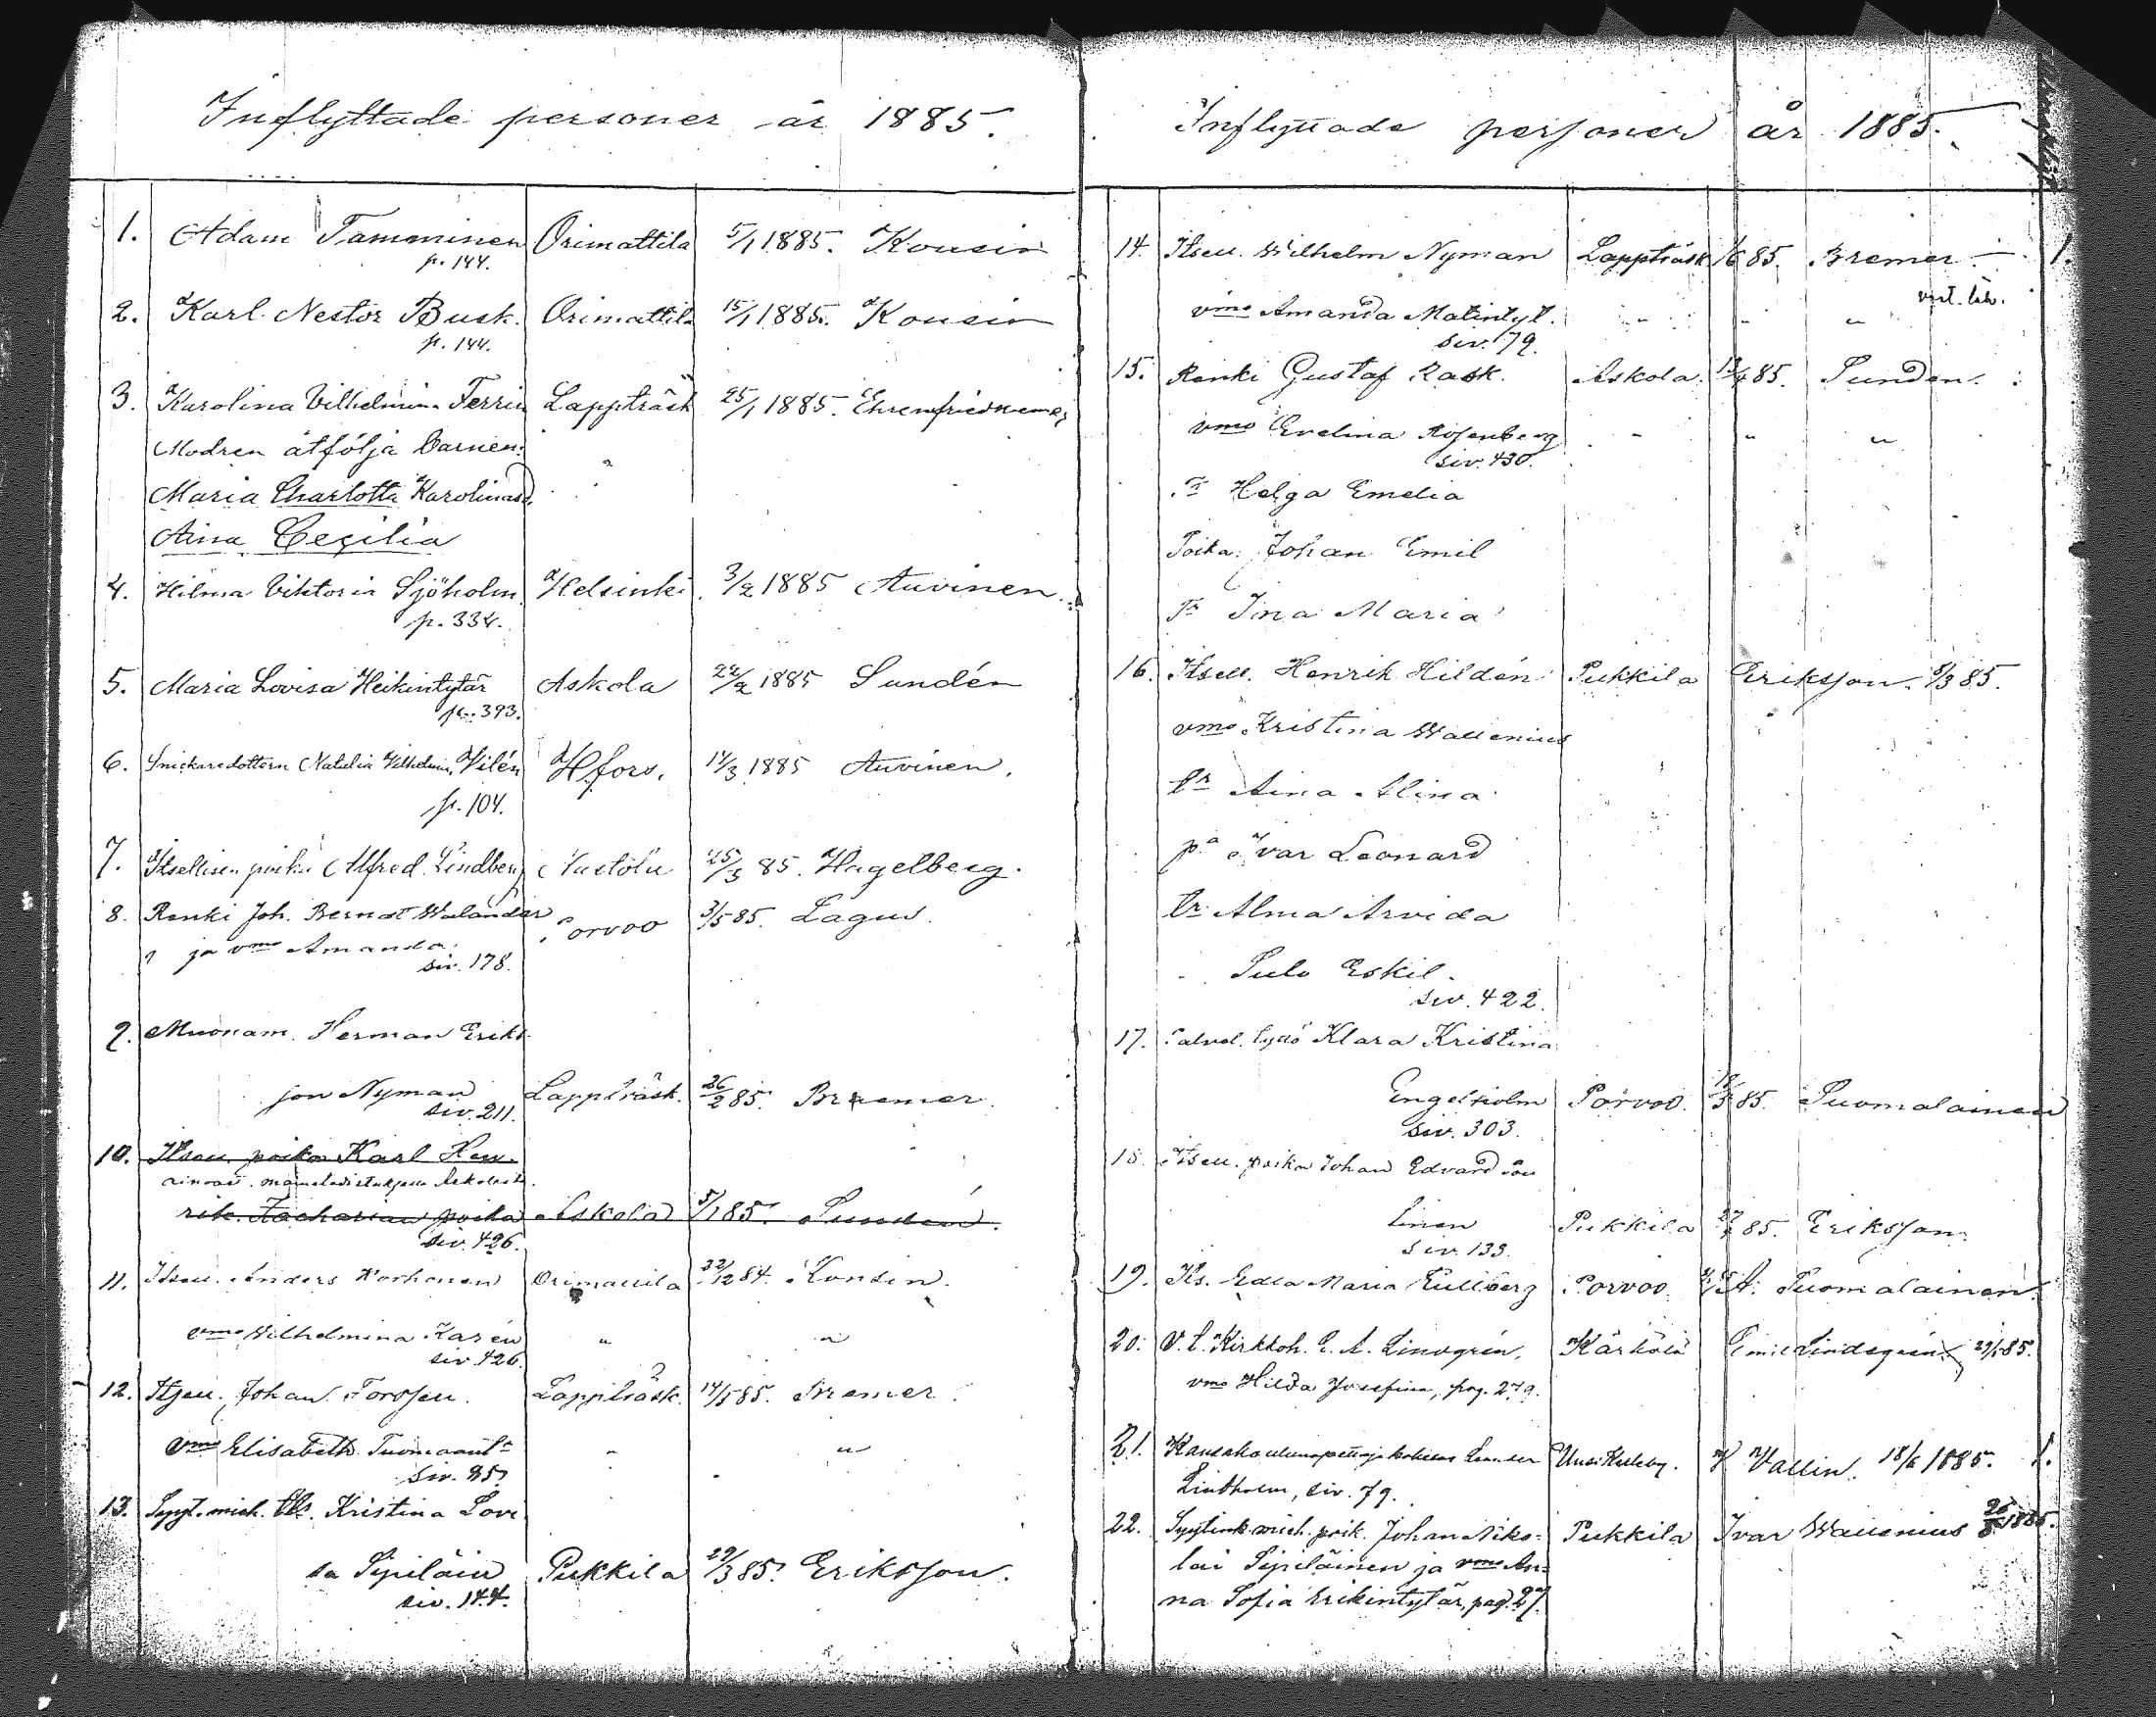 Inflyttade personer år 1885.
1. Adam Tamminen Orimattila 5/1 1885. Kousin
p. 144.
2. Karl Nestor Busk. Orimattila 15/1 1885. Kousin
p. 144.
3. Karolina Vilhelmina Ferrin Lappträsk 25/1 1885.
Modren åtfölja barnen:
Maria Charlotta Karolinad.
Aina Cecilia
4. Hilma Viktoria Sjöholm Helsinki. 3/2 1885 Auvinen
p. 334.
5. Maria Lovisa Heikintytär Askola 22/2 1885 Sundén
p. 393.
6. Snickaredottern Natalia Vilhelmin. Vilén H.fors. 14/3 1885 Auvinen.
p. 104.
7. Itsellisen poika Alfred Lindberg 85. Hagelberg.
8. Renki Joh. Bernat Porvoo 3/5 85. Lagus.
ja vmo Amanda.
siv. 178.
9. Muonam. Herman Eriks-
son Nyman Lappträsk. 26/2 85. Bremer.
siv. 211.
10. Itsell. poika Karl Hen-
rik Zacharian poika Askola 5/1 85. Sundén.
siv. 426.
11. Itsell. Anders Korhonen Orimattila 22/12 84. Kousin.
vmo Wilhelmina Karén " "
siv. 426.
12. Itsell. Johan Forssell. Lappträsk. 14/5 85. Bremer.
vmo Elisabeth " "
siv.
13. Kristina Lovi
sa Sipiläin Pukkila 29/3 85. Eriksson.
siv. 144.
Inflyttade personer år 1885.
14. Itsell. Wilhelm Nyman Lappträsk 1/6 85. Bremer. 1.
vmo Amanda Matintyt. " " "
siv. 79.
15. Renki Gustaf Rask. Askola. 85. Sundén.
vmo Evelina Rosenberg " " "
siv. 430.
Tr Helga Emelia
Poika: Johan Emil
Tr Ina Maria
16. Itsell. Henrik Hildén Pukkila Eriksson. 8/3 85.
vmo Kristina Wallenius
tr Aina Alina
pa Ivar Leonard
tr Alma Arvida
Sulo Eskil.
siv. 422.
17. Palvel. tyttö Klara Kristina
Engelholm Porvoo. 85. Suomalainen
siv. 303.
18. Itsell. poika Johan Edvard
linen Pukkila 85. Eriksson.
siv. 133.
19. Its. Edla Maria Porvoo. Suomalainen.
20. V. t. Kirkkoh. E. A. Lindgrén. Kärkölä Emil Lindgrén 85.
vmo Hilda Josefina, pag. 279.
21. Uusi Karleby. K Vallin. 18/6 1885. 1.
Lindholm, siv. 79.
22. Syytink. mieh. poik. Johan Niko- Pukkila Ivar Wallenius 1885.
lai Sipiläinen ja vmo An-
na Sofia Erikintytär, pag. 27.